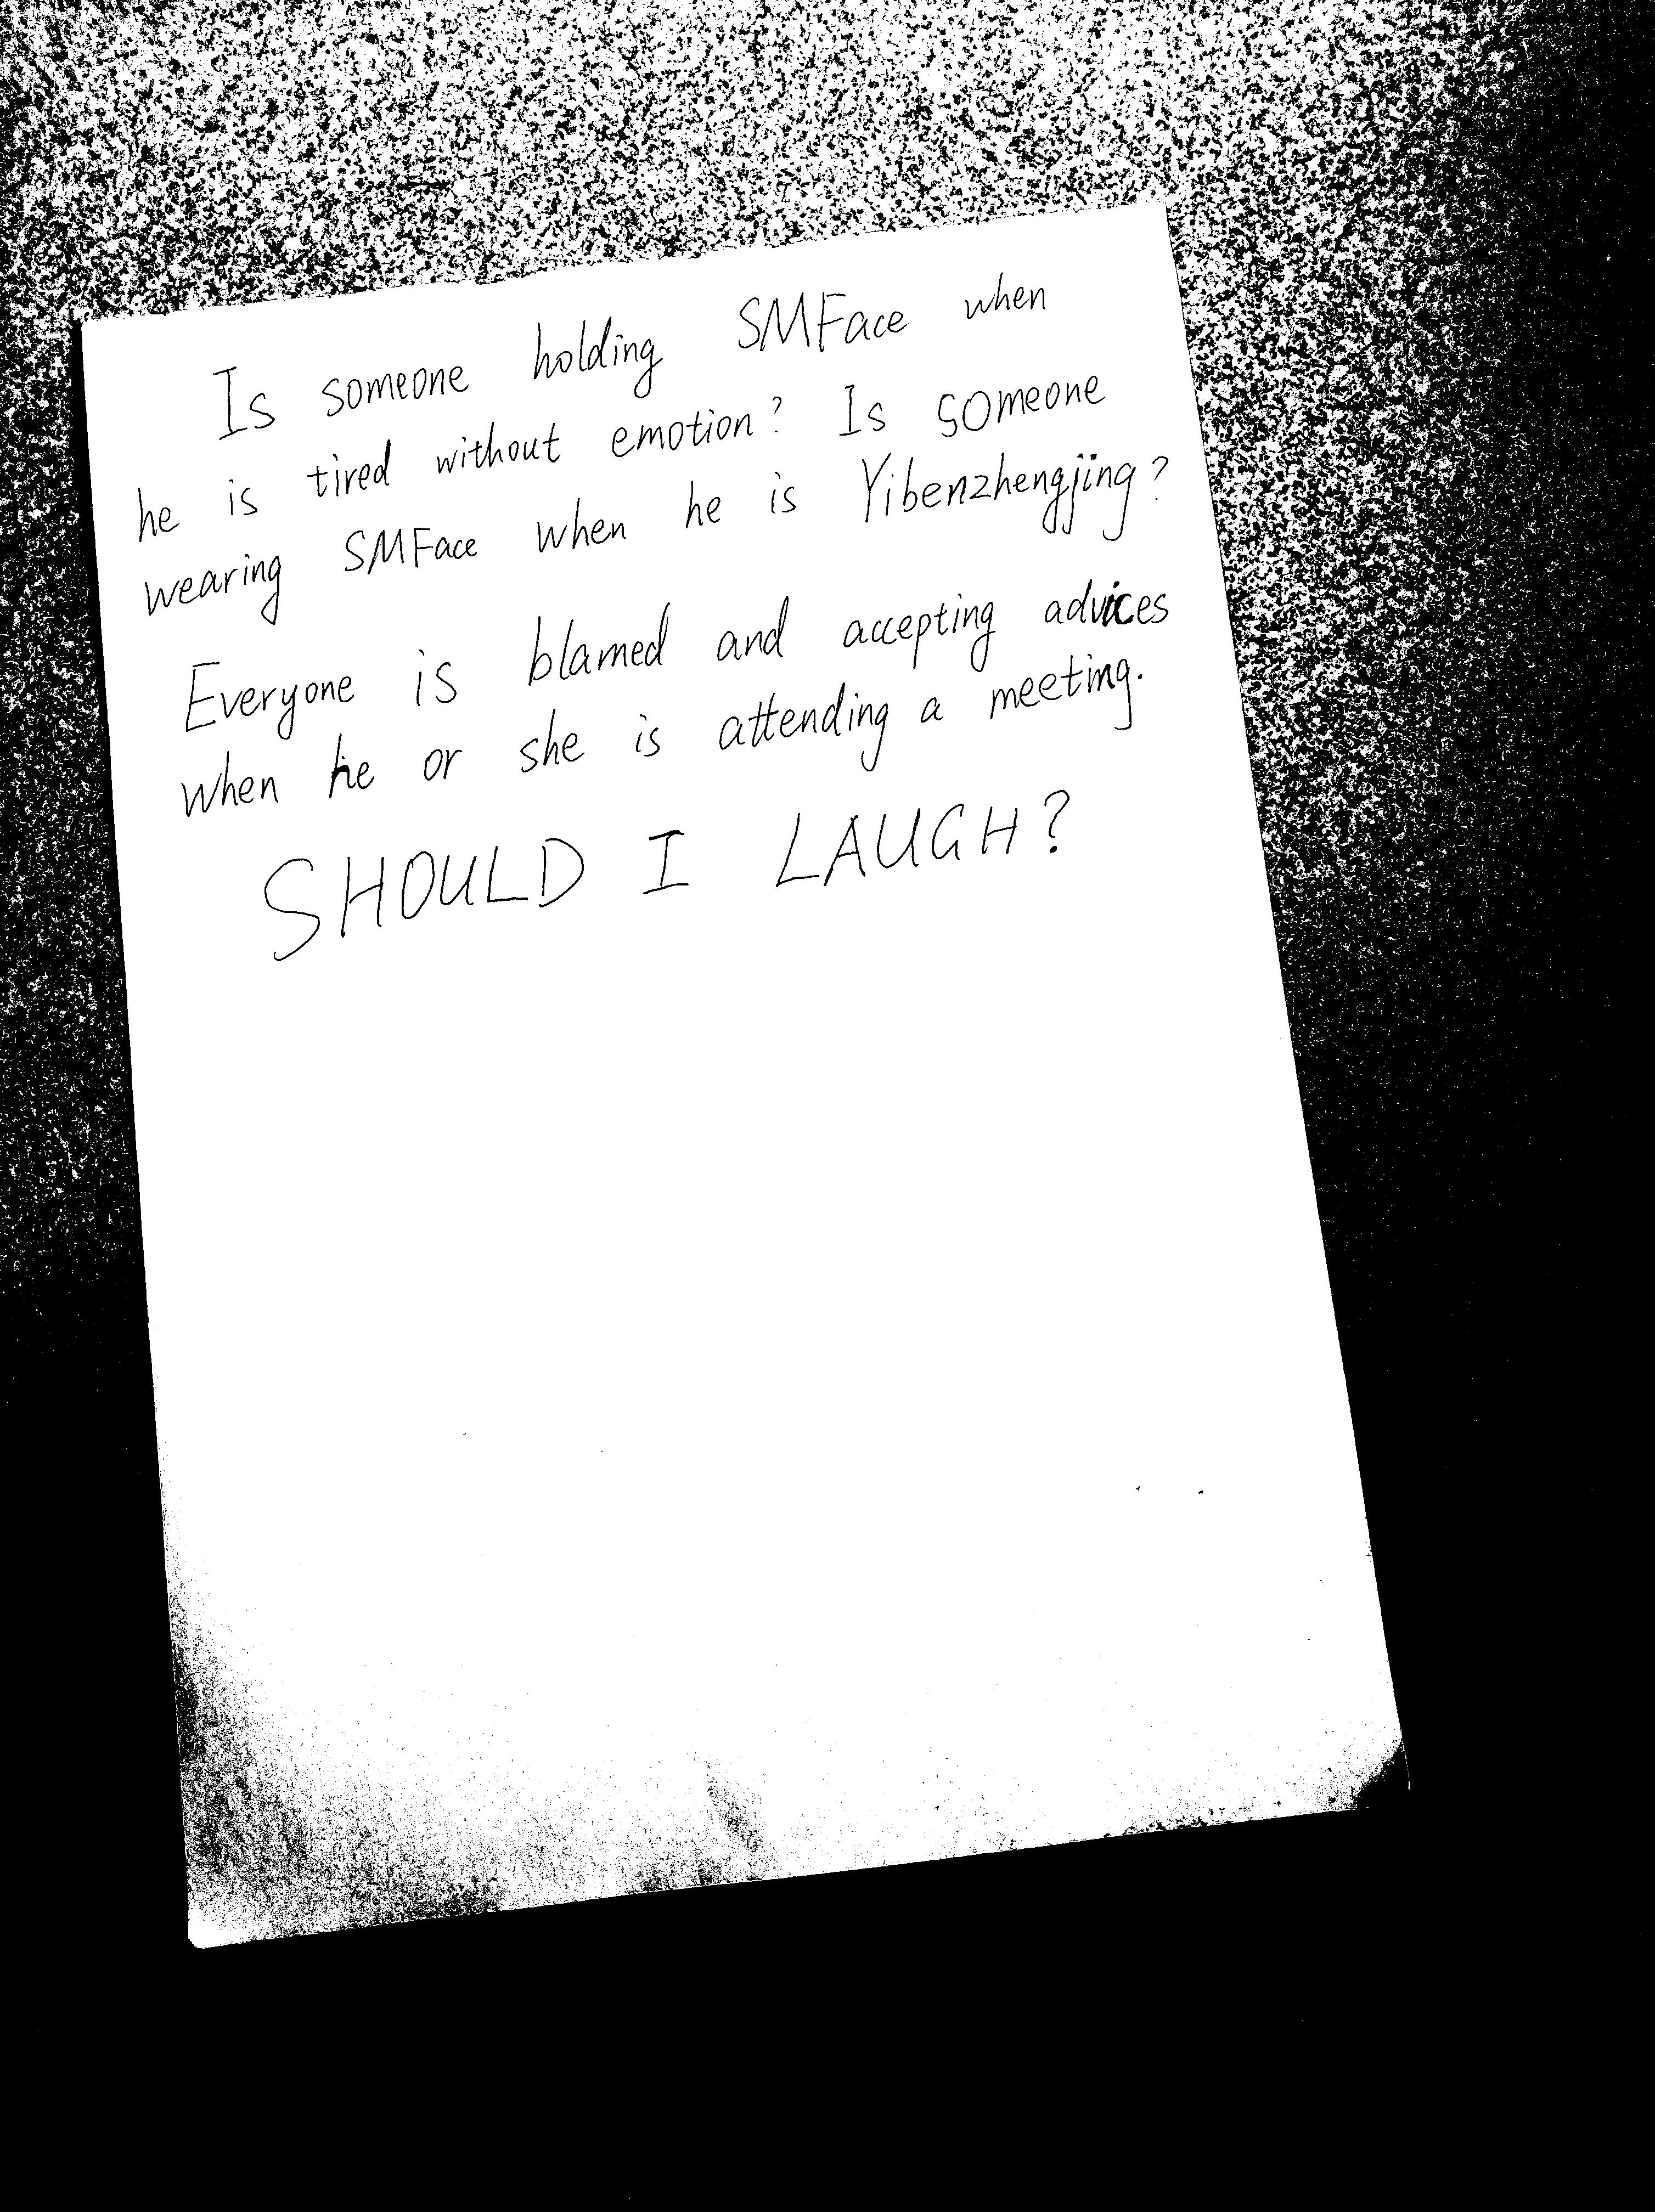 Is someone holding SMFace when
he is tired without emotion? Is someone
wearing SMFace when he is Yibenzhengjing?
Everyone is blamed and accepting advices
when he or she is attending a meeting.
SHOULD I LAUGH?